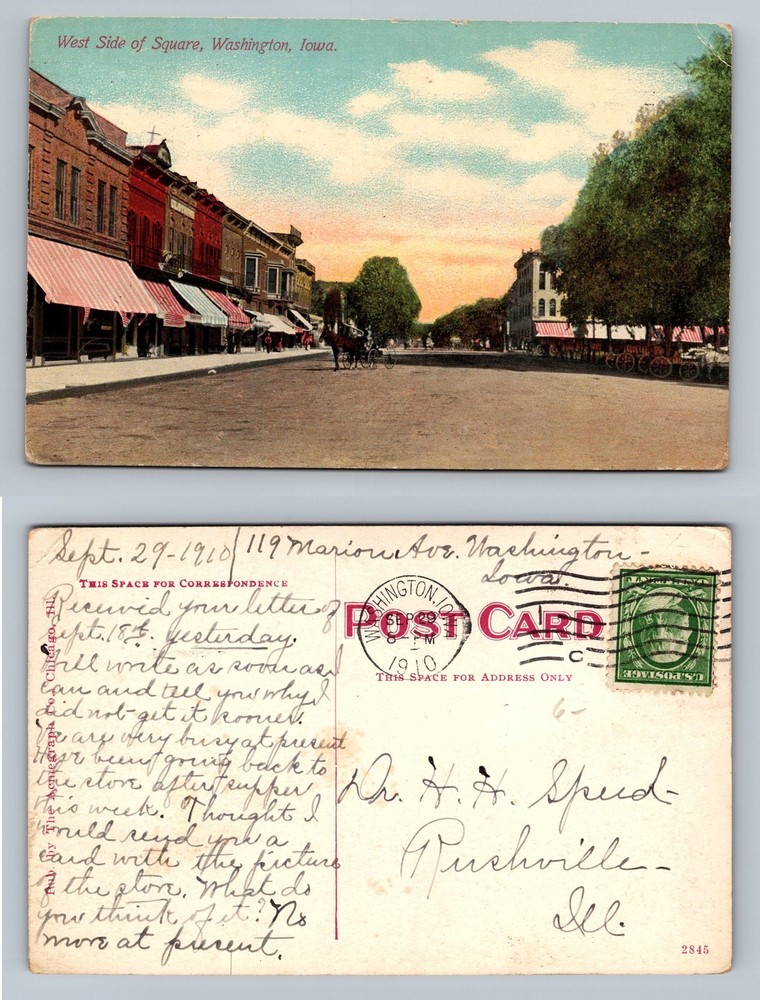 West Side of Square, Washington, Iowa.
Sept. 29-1910 / 119 Marion Ave. Washington-
Iowa.
THIS SPACE FOR CORRESPONDENCE
Received your letter of
sept. 18th yesterday.
Will write as soon as I
can and tell you why I
did not get it sooner.
We are very busy at present
Have been going back to
the store after supper
this week. Thought I
would send you a
card with the picture
of the store. What do
you think of it? No
more at present.
Pub. by The Acmegraph Co., Chicago, Ill.
POST CARD
THIS SPACE FOR ADDRESS ONLY
WASHINGTON, IOWA
SEP 29
8 PM
1910
C
U.S. POSTAGE
6-
Dr. H. H. Speed-
Rushville-
Ill.
2845